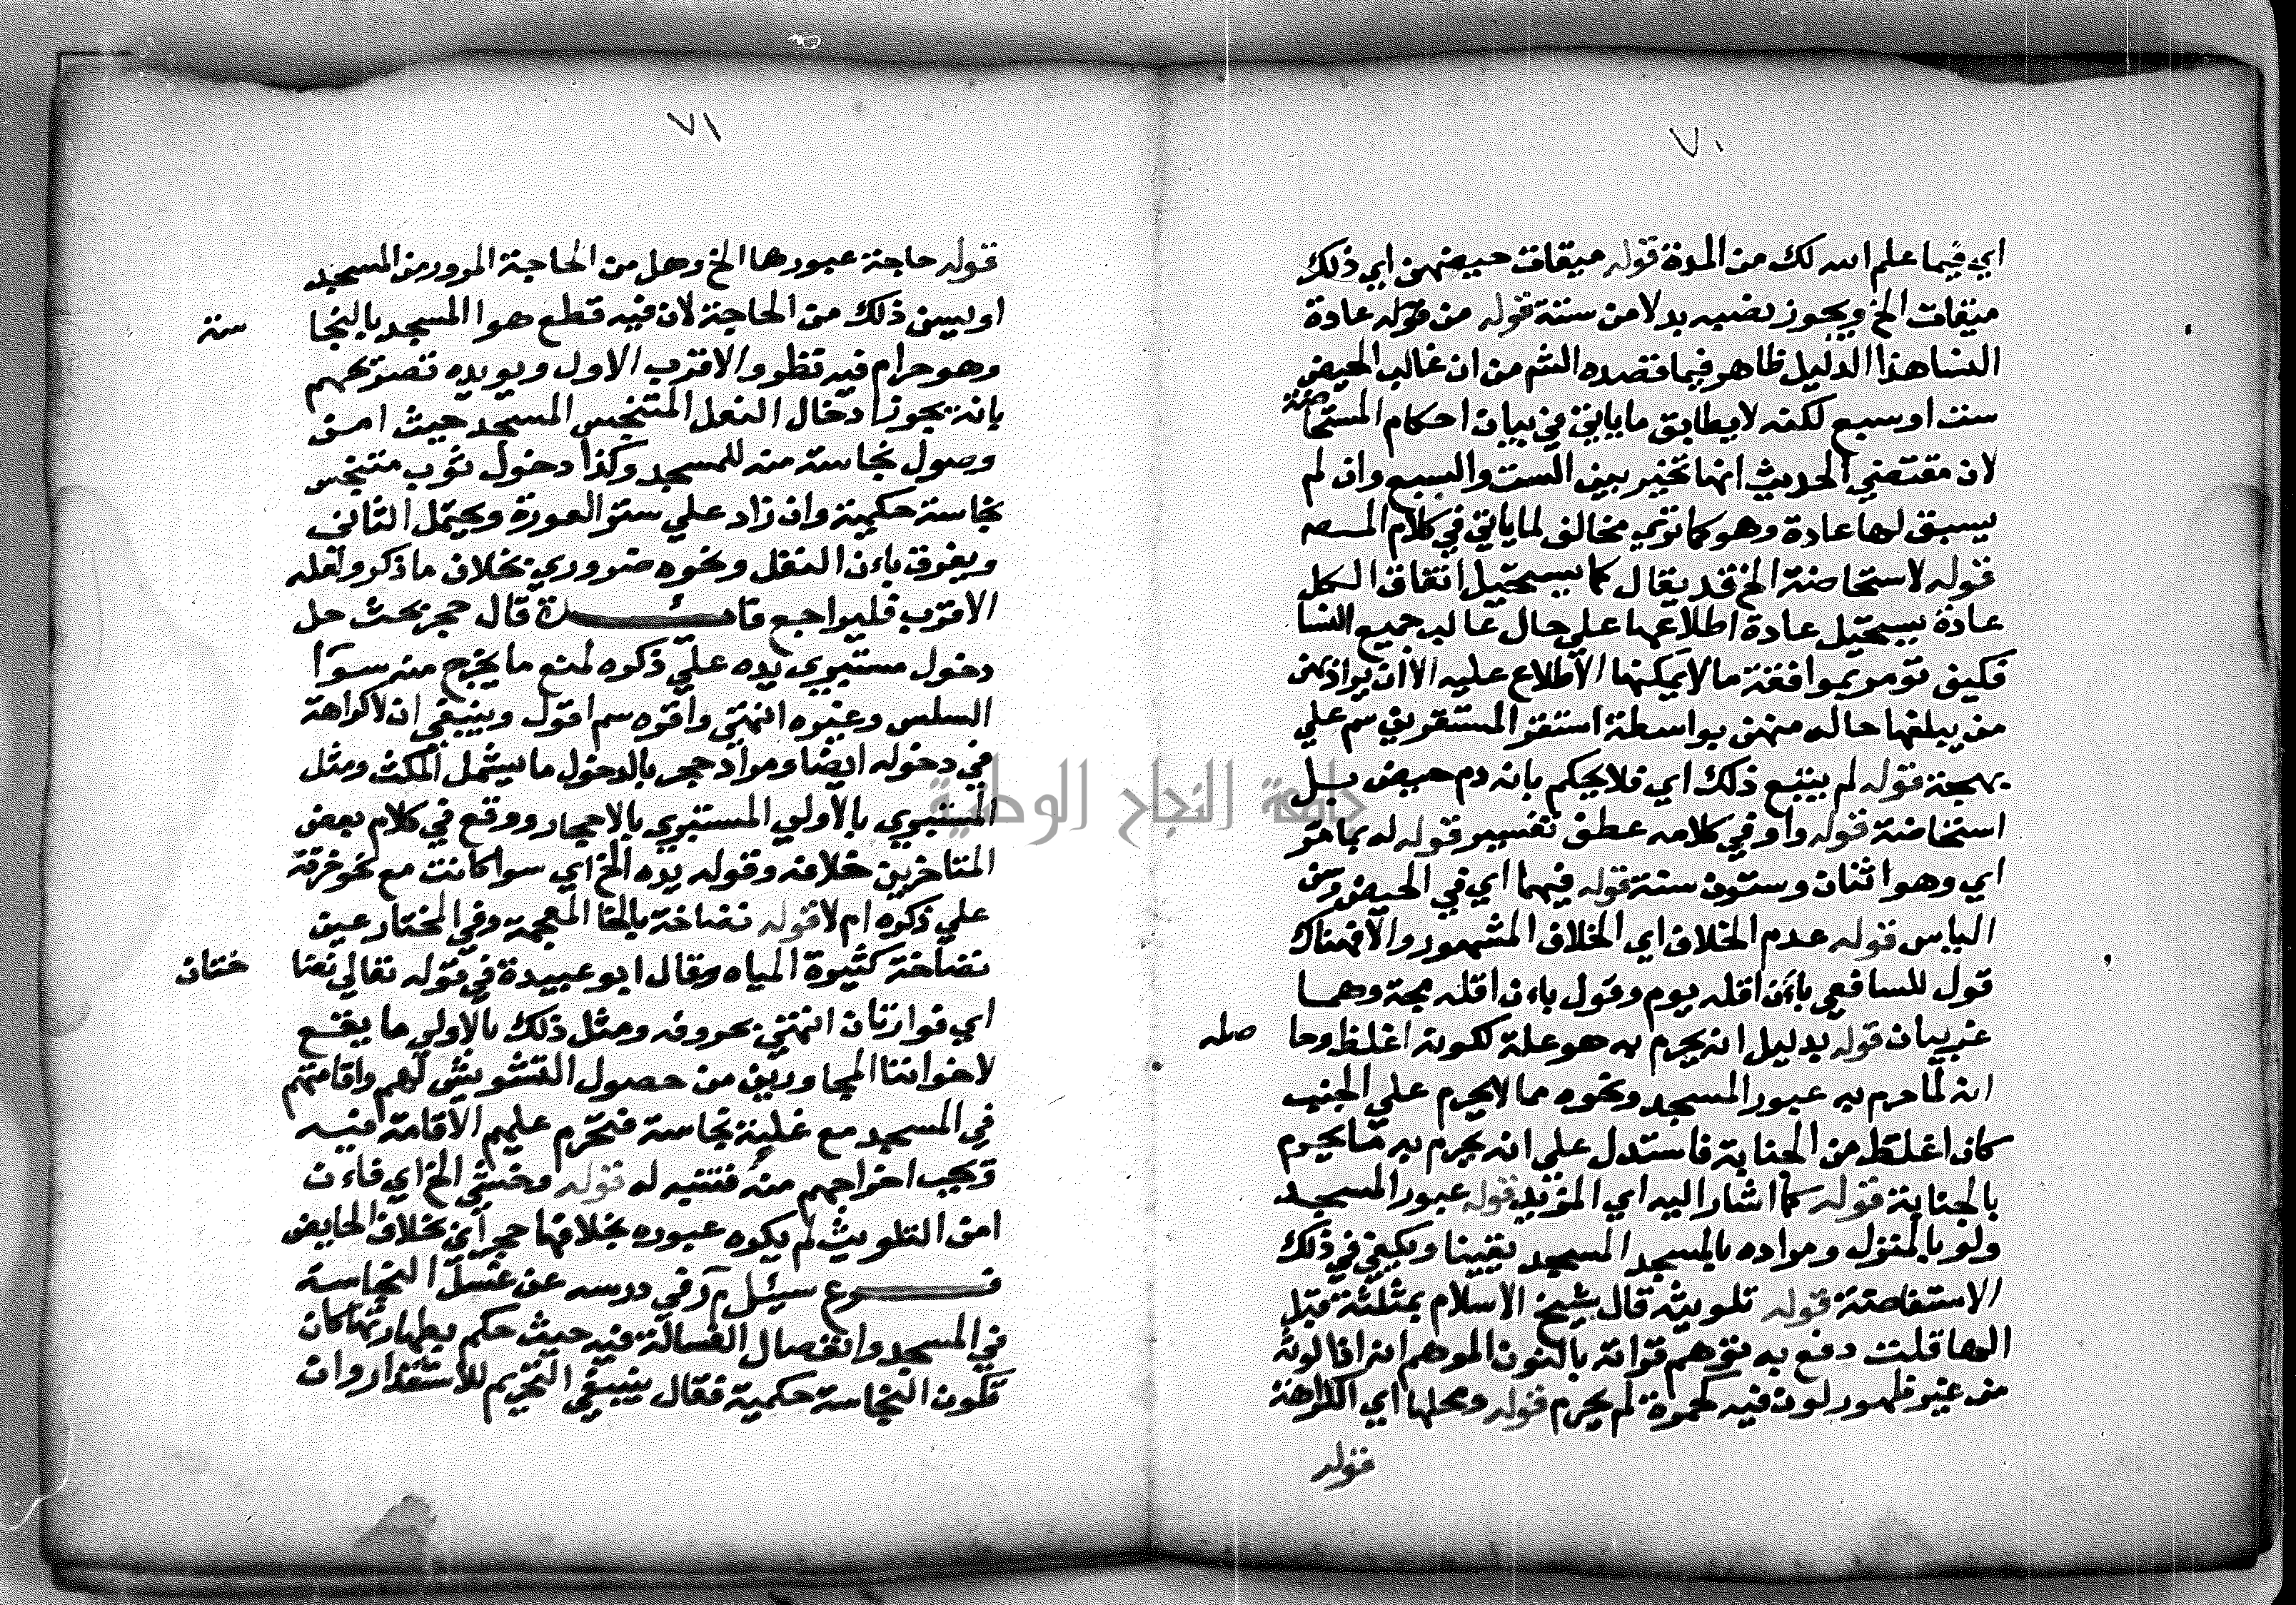 ٧٠
اي فيما علم الله لك من المدة قوله ميقات حيضهن اي ذلك
ميقات الخ ويجوز نصبه بدلا من ستة قوله من قوله عادة
النسا هذا الدليل ظاهر فيما قصده الشم من ان غالب الحيض
ست او سبع لكنه لا يطابق ما ياتي في بيان احكام المستحاضة
لان مقتضي الحديث انها تخير بين الست والسبع وان لم
يسبق لها عادة وهو كما تري مخالف لما ياتي في كلام المصـ
قوله لاستحاضة الخ قد يقال كما يستحيل اتفاق الكل
عادة يستحيل عادة اطلاعها علي حال غالب جميع النسا
فكيف تومر بموافقة ما لا يمكنها الاطلاع عليه الا ان يراد بهن
من يبلغها حاله منهن بواسطة استقرا المستقرين سم علي
بهجة قوله لم ينبع ذلك اي فلا يحكم بانه دم حيض بل
استحاضة قوله واو في كلامه عطف تفسير قوله له بما مر
اي وهو اثنان وستون سنة قوله فيهما اي في الحيض وسن
الياس قوله عدم الخلاف اي الخلاف المشهور والا فهناك
قول للسافعي باءن اقله يوم وقول باءن اقله مجة وهما
غريبان قوله بدليل انه يحرم به هو علة لكونه اغلظ وحا
صله
انه لما حرم به عبور المسجد ونحوه مما لا يحرم علي الجنب
كان اغلظ من الجنابة فاستدل علي انه يحرم به ما يحرم
بالجنابة قوله كما اشار اليه اي المزيد قوله عبور المسجد
ولو بالمنزل ومراده بالمسجد المسجد يقينا ويكفي في ذلك
الاستفاضة قوله تلويثه قال شيخ الاسلام بمثلثة قبل
الها قلت دفع به توهم قراته بالنون الموهم انه اذا لونه
من غير ظهور لون فيه كحمرة لم يحرم قوله ومحلها اي الكراهة
قوله
٧١
قوله حاجة عبورها الخ وهل من الحاجة المرور من المسجد
او ليس ذلك من الحاجة لان فيه قطع هوا المسجد بالنجا
سة
وهو حرام فيه نظر والاقرب الاول ويويده تصريحهم
بانه يجوز ادخال النعل المتنجس المسجد حيث امن
وصول نجاسة منه للمسجد وكذا دخول ثوب متنجس
نجاسة حكمية وان زاد علي ستر العورة ويحتمل الثاني
ويفرق باءن النقل ونحوه ضروري بخلاف ما ذكر ولعله
الاقرب فليراجع فائـــدة قال حجر بحث حل
دخول مستبري يده علي ذكره لمنع ما يخرج منه سوآ
السلس وغيره انتهي واقره سم اقول وينبغي ان لا كراهة
في دخوله ايضا ومراد حجر بالدخول ما يشمل المكث ومثل
المستبري بالاولي المستبري بالاحجار ووقع في كلام بعض
المتاخرين خلافه وقوله يده الخ اي سوا كانت مع نحو خرقة
علي ذكره ام لا قوله نضاخة بالخا المعجمة وفي المختار عين
نضاخة كثيرة المياه وقال ابو عبيدة في قوله تعالي نضا
ختان
اي فوارتان انتهي بحروفه ومثل ذلك بالاولي ما يقع
لاخواننا المجاورين من حصول التشويش لهم واقامتهم
في المسجد مع غلبة نجاسة فتحرم عليهم الاقامة فيه
ويجب اخراجهم منه فتنبه له قوله وخشي الخ اي فاءن
امن التلويث لم يكره عبوره بخلافها حجر اي بخلاف الحايض
فــــرع سئل م ر في درسه عن غسل النجاسة
في المسجد وانفصال الغسالة فيه حيث حكم بطهارتها كان
تكون النجاسة حكمية فقال ينبغي التحريم للاستقذار وان
جامعة النجاح الوطنية